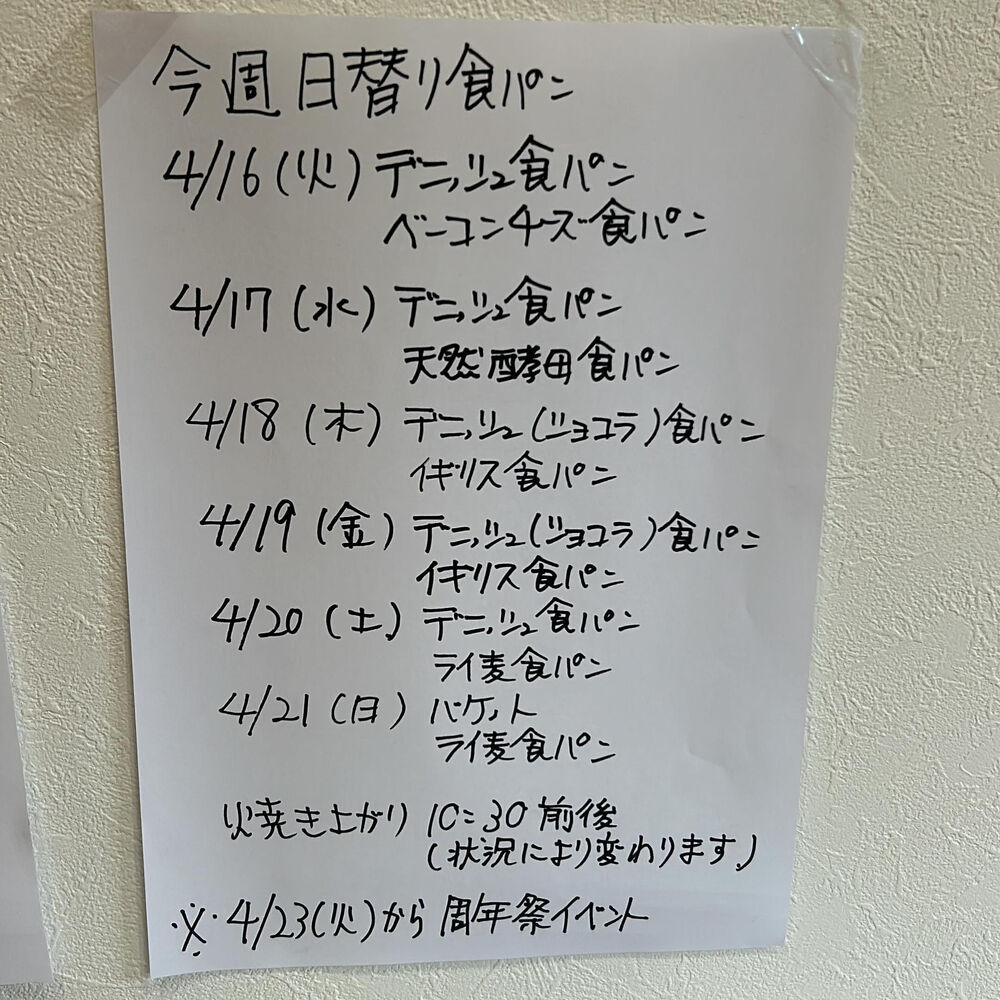 今週日替り食パン
4/16(火) デニッシュ食パン
ベーコンチーズ食パン
4/17(水) デニッシュ食パン
天然酵母食パン
4/18(木) デニッシュ(ショコラ)食パン
イギリス食パン
4/19(金) デニッシュ(ショコラ)食パン
イギリス食パン
4/20(土) デニッシュ食パン
ライ麦食パン
4/21(日) バケット
ライ麦食パン
焼き上がり 10:30前後
(状況により変わります)
※4/23(火)から周年祭イベント